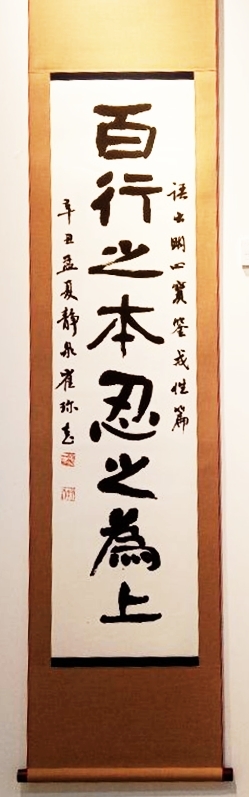 語出明心寶鑒戒性篇
百行之本忍之為上
辛丑孟夏靜泉崔